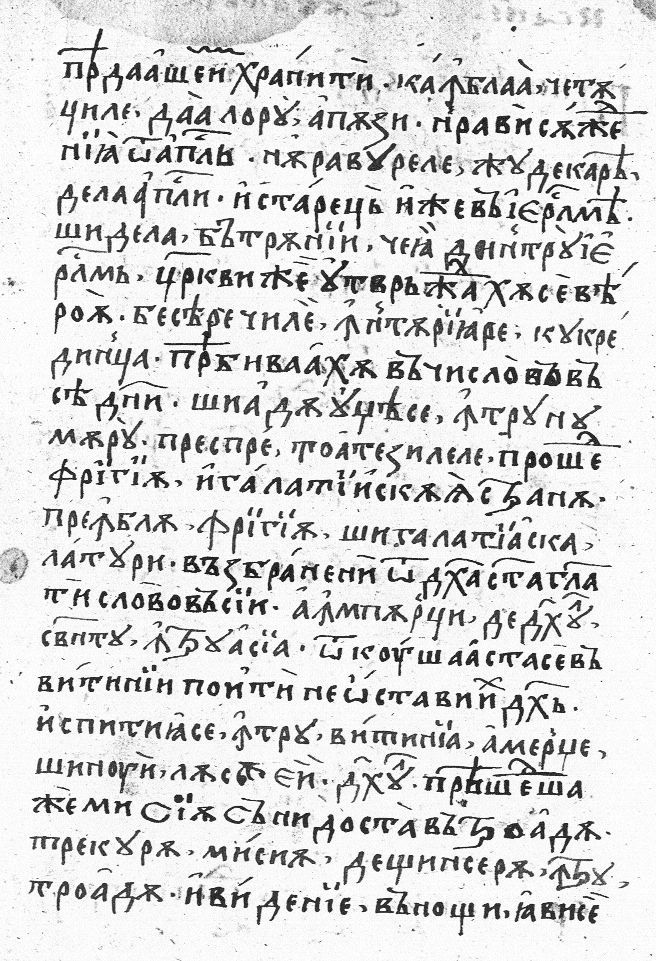 прѣдааше́и храни́ти · ка ꙟбла̀, четѫ
циле, даа̀ лорꙋ̀, а҆пѫзи · нравѝ сѫ́же
нїꙗ̀ ѿа҆пⷭ҇лъ · нѫравꙋреле, жꙋдекатѣ,
дела а҆пⷭ҇ли · и҆ста́рець и҆же въ і҆ерⷭ҇лмѣ ·
ши дела, бътрѫнїи, чеꙗ̀ динꙟтрꙋ і҆е
рⷭ҇лмь, црⷦ҇ви же ᲂу҆тврьжⷣахѫсе вѣ́
роѫ̀ · бесѣречиле̑, ꙟнтѫрїꙗ́ре, кꙋкре
динца · прѣбивааⷯхѫ въ число въ въ
сѣ дн҃и · ши а҆дѫꙋ҆цѣсе, ꙟтрꙋ нꙋ
мѫрꙋ̀ · преспре́, тоа҆те зилеле · проше́ⷣ
фрїгїѫ, и҆гала́тїи́скѫѫ̀ странѫ ·
преꙟблѫ, фрїгїѫ, ши галатїа҆ска,
ла́тꙋри · възбра́нени ѿ дх҃а ста гл҃а
ти слово въ сїи · а҆ꙟмпѫрци, де дх҃ꙋ,
сви́нтꙋ, ꙟтрꙋ а́сїа · ѿкоу́шаа҆стасе въ
ви́тинїи поити не ѡ҆ста́ви иⷯ дх҃ь ·
и҆спити́ꙗ҆се, ꙟтрꙋ, ви́тинїа, а҆мерце,
ши ноуи̑, лѫсѣ · еи̑ · дх҃ꙋ · прише́ⷣша
же ми сїѫ сънидоста въ троа́дѫ ·
трекꙋрѫ, ми́сиѫ, дешинсерѫ, ꙟтрꙋ,
троа́дѫ · и҆ви́денїе, въ нощи, ꙗ҆висе̑